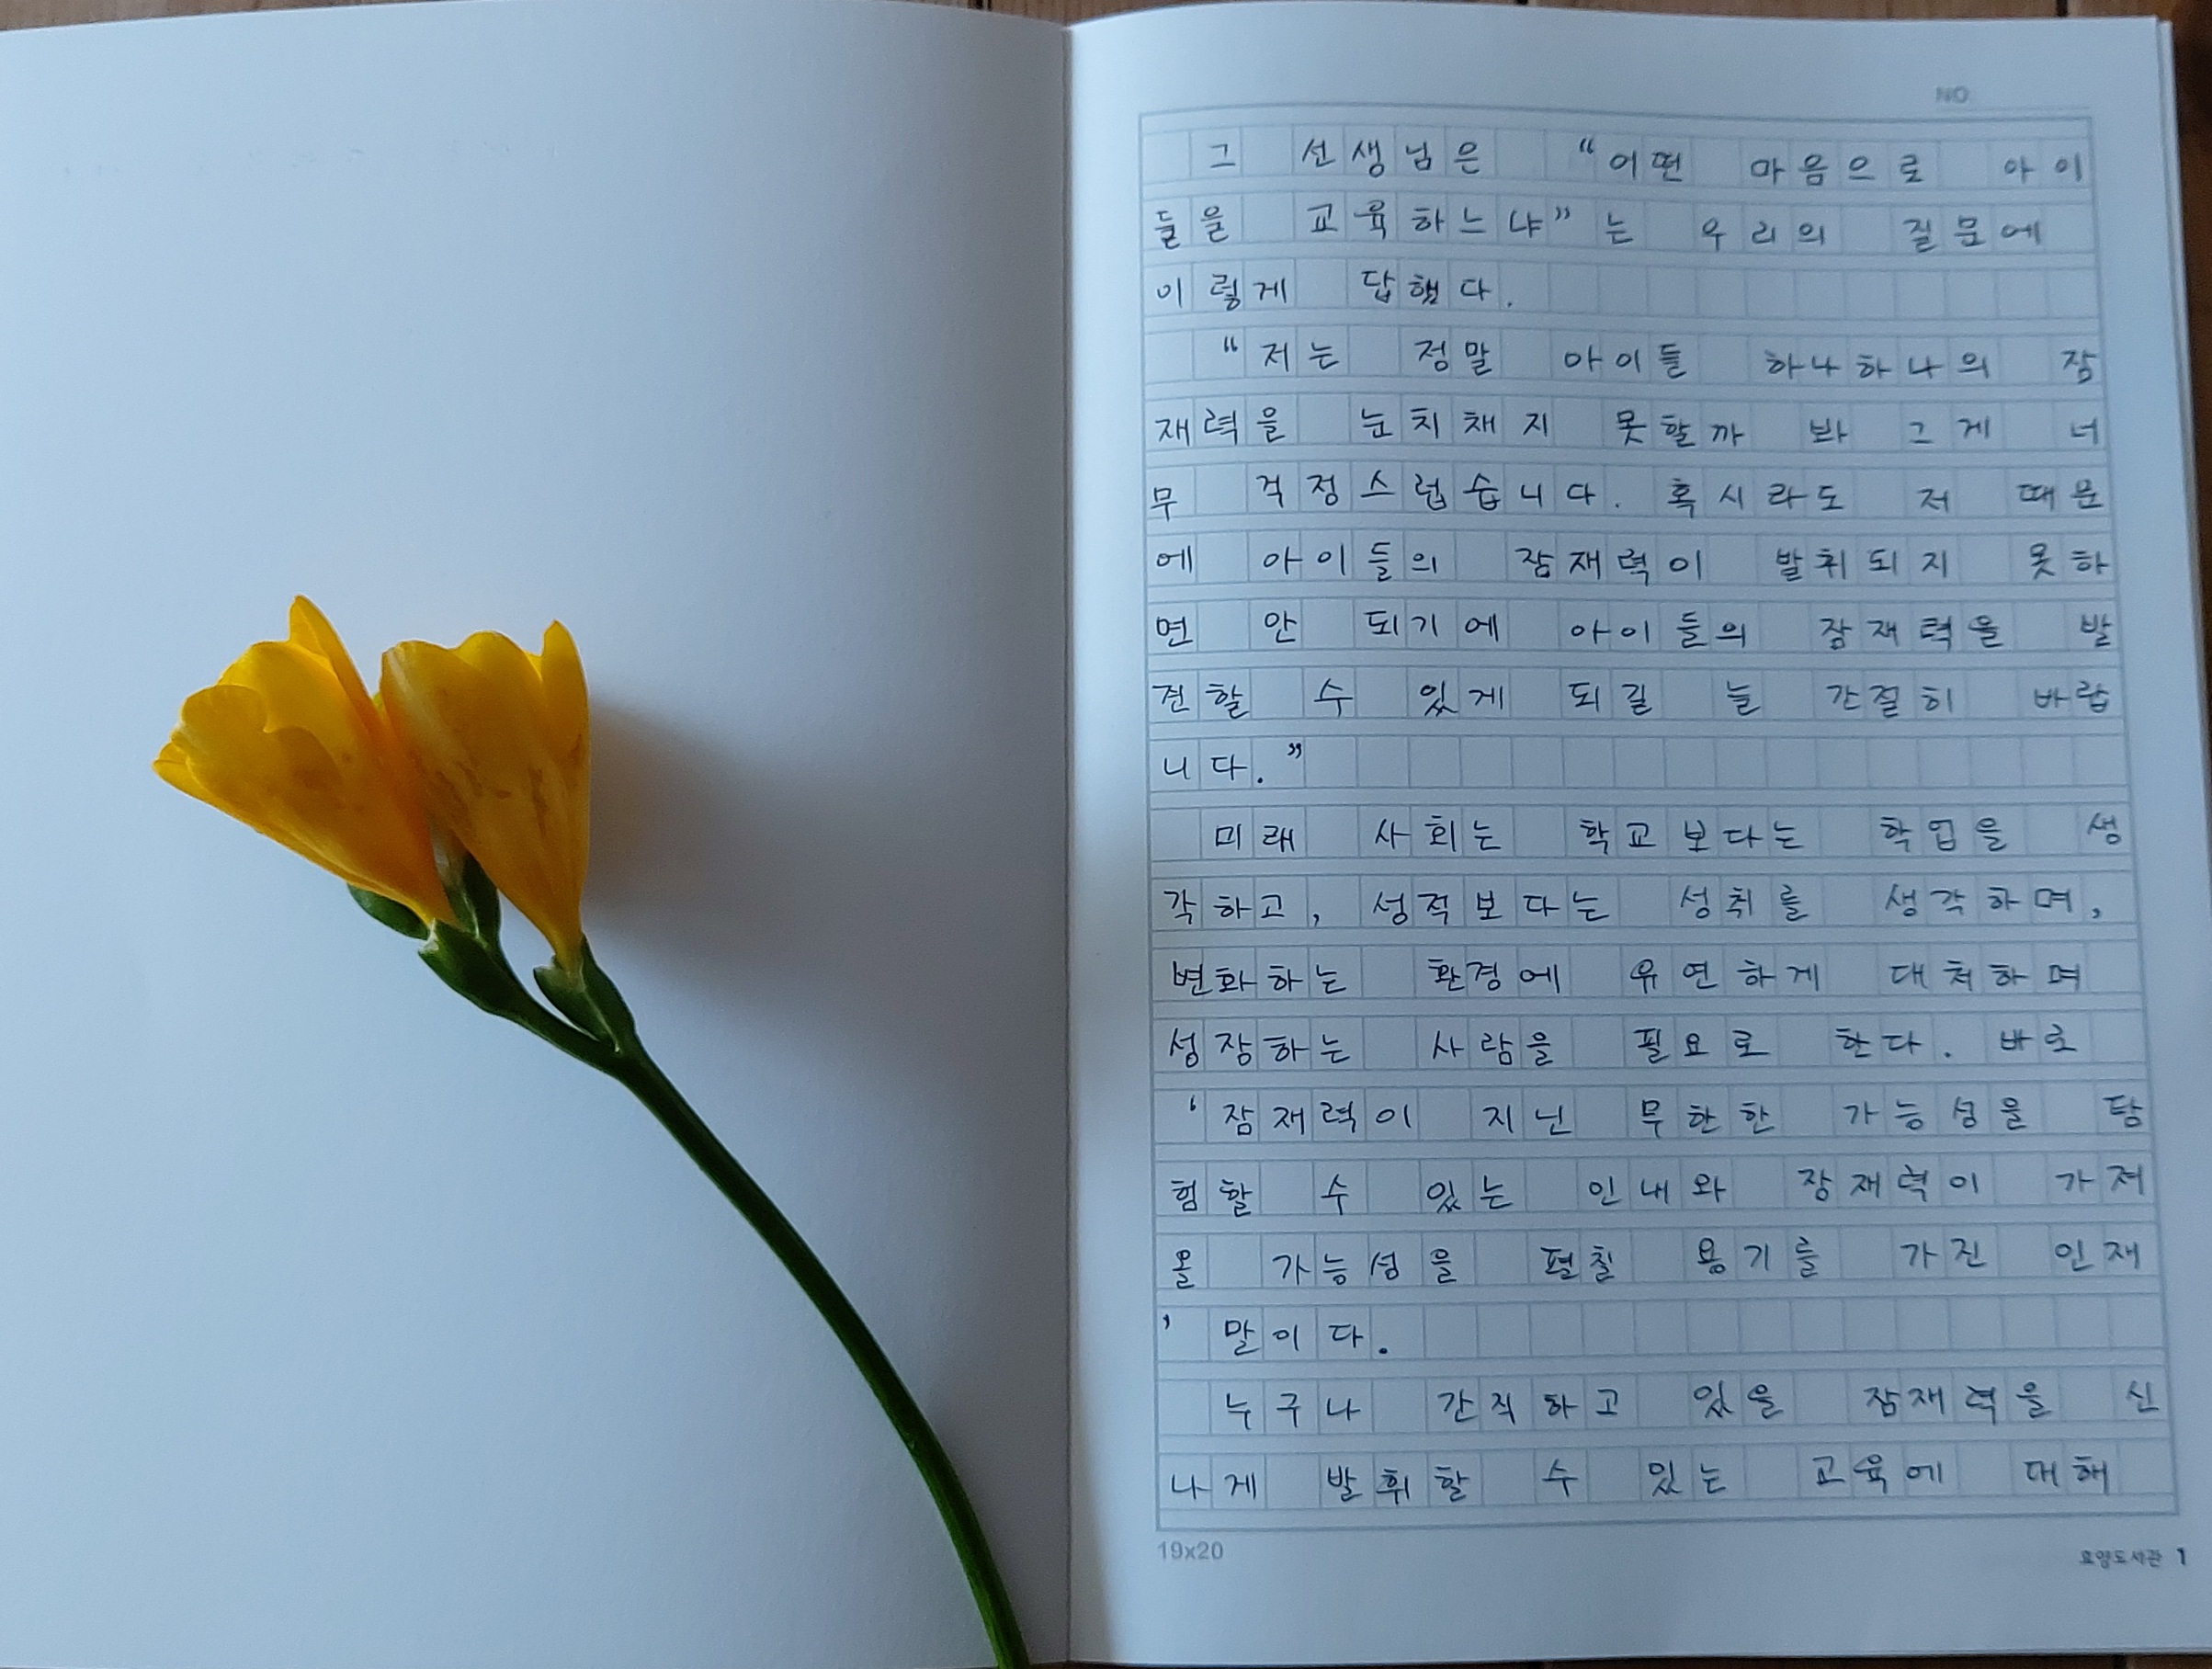 NO
그 선생님은 “어떤 마음으로 아이
들을 교육하느냐”는 우리의 질문에
이렇게 답했다.
“저는 정말 아이들 하나하나의 잠
재력을 눈치채지 못할까 봐 그게 너
무 걱정스럽습니다. 혹시라도 저 때문
에 아이들의 잠재력이 발취되지 못하
면 안 되기에 아이들의 잠재력을 발
견할 수 있게 되길 늘 간절히 바랍
니다.”
미래 사회는 학교보다는 학업을 생
각하고, 성적보다는 성취를 생각하며,
변화하는 환경에 유연하게 대처하며
성장하는 사람을 필요로 한다. 바로
‘잠재력이 지닌 무한한 가능성을 탐
험할 수 있는 인내와 잠재력이 가져
올 가능성을 펼칠 용기를 가진 인재
’ 말이다.
누구나 간직하고 있을 잠재력을 신
나게 발휘할 수 있는 교육에 대해
19x20
1